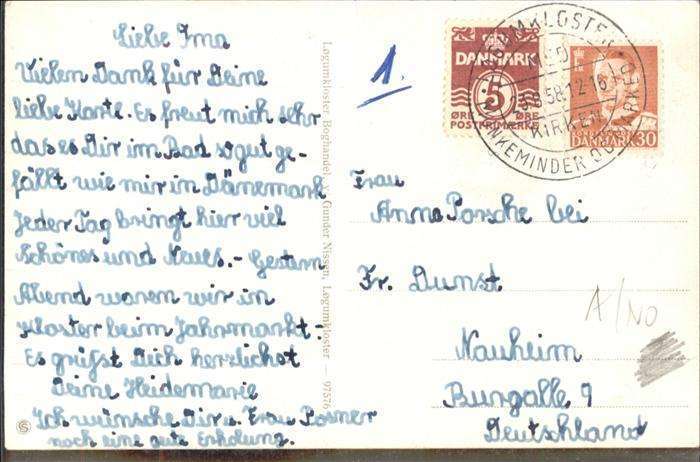 Liebe Ima
Vielen Dank für Deine
liebe Karte. Es freut mich sehr
das es Dir im Bad so gut ge-
fällt wie mir in Dänemark
Jeder Tag bringt hier viel
Schönes und Neues. - Gestern
Abend waren wir im
Kloster beim Jahrmarkt -
Es grüßt Dich herzlichst
Deine Heidemarie
Ich wünsche Dir u. Frau Posner
noch eine gute Erholung.
Løgumkloster Boghandel, v. Gunder Nissen, Løgumkloster — 97576
1.
DANMARK
5
ØRE ØRE
POSTFRIMÆRKE
DANMARK 30
LØGUMKLOSTER
8.58.12-16
KIRKEN
MINDER OG MARKED
Frau
Anna Porsche bei
Fr. Dunst
Nauheim
Burgalle 9
Deutschland
A/NO